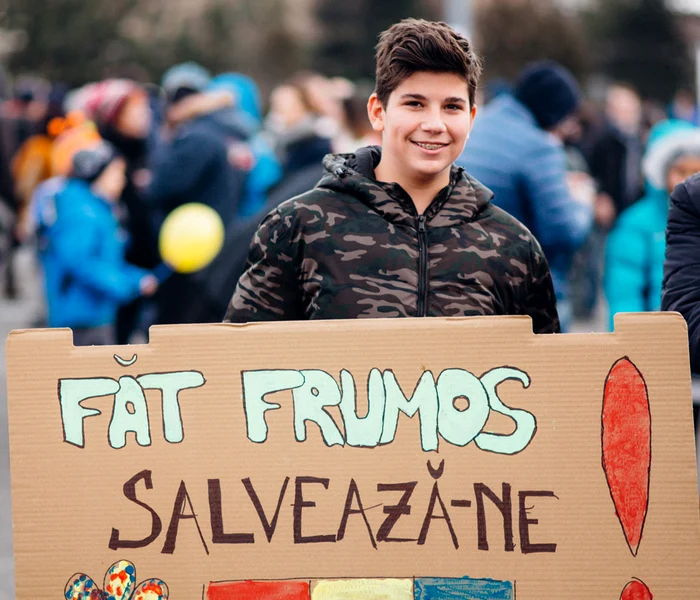 FĂT FRUMOS
SALVEAZĂ-NE !